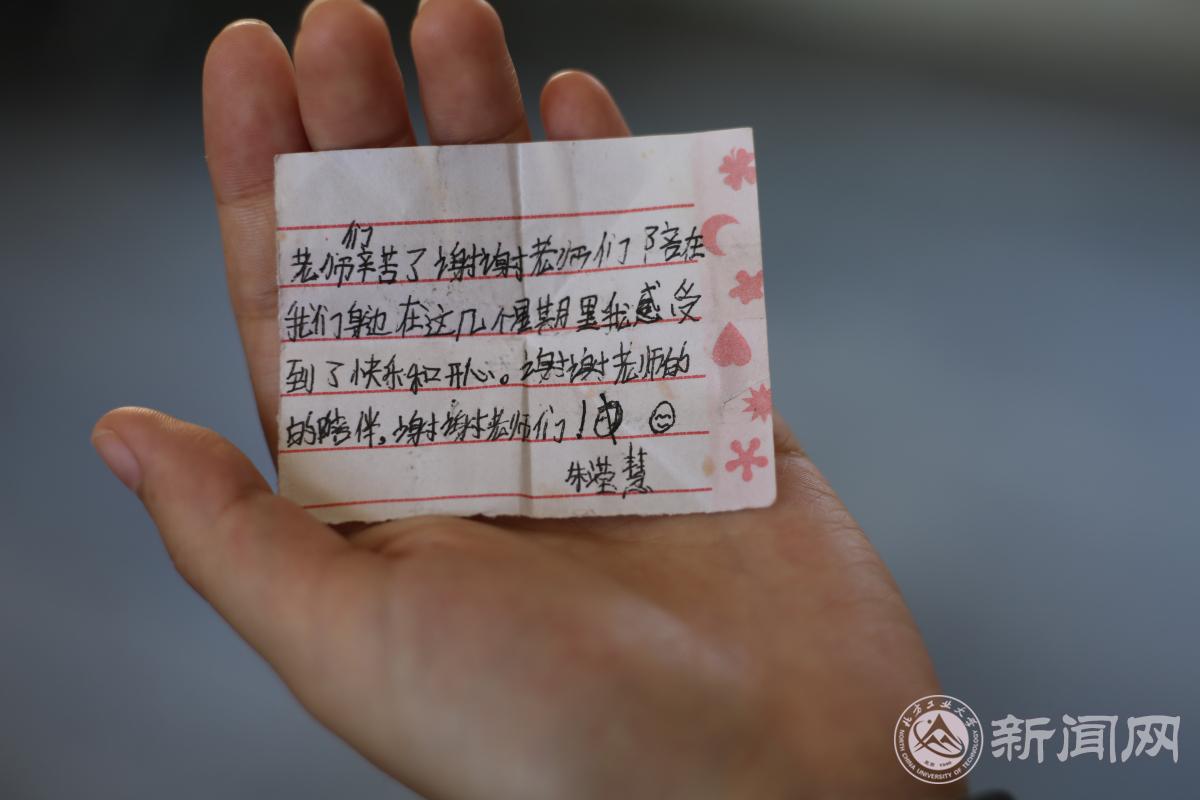 老师们辛苦了谢谢老师们陪在
我们身边在这几个星期里我感受
到了快乐和开心。谢谢老师的
的陪伴,谢谢老师们!
朱滢慧
北方工业大学
NORTH CHINA UNIVERSITY OF TECHNOLOGY
新闻网